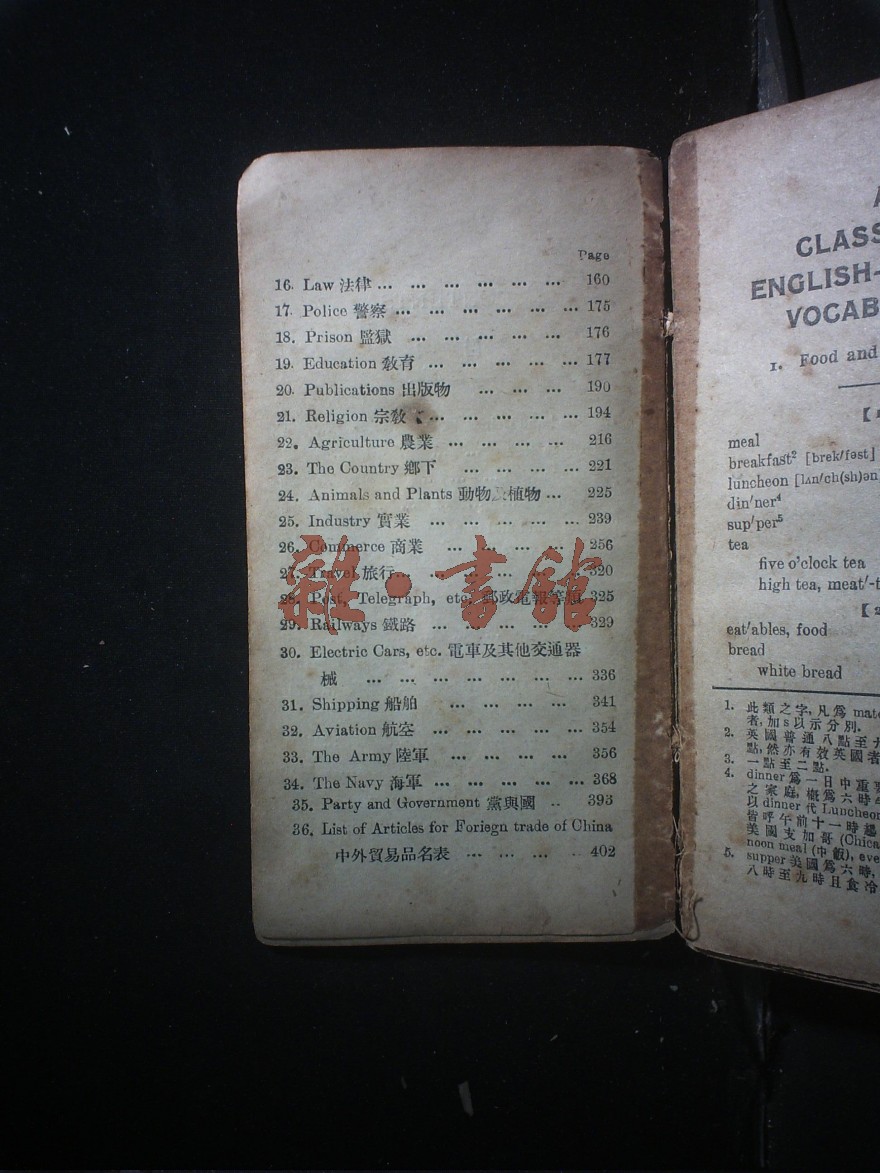 Page
16. Law 法律 ... ... ... ... ... ... 160
17. Police 警察 ... ... ... ... ... ... 175
18. Prison 監獄 ... ... ... ... ... 176
19. Education 敎育 ... ... ... ... ... 177
20. Publications 出版物 ... ... ... 190
21. Religion 宗敎 ... ... ... ... ... 194
22. Agriculture 農業 ... ... ... ... 216
23. The Country 鄉下 ... ... ... ... 221
24. Animals and Plants 動物 植物 ... 225
25. Industry 實業 ... ... ... ... ... 239
26. Commerce 商業 ... ... ... ... 256
27. Travel 旅行 ... ... ... ... ... ... 320
28. Post, Telegraph, etc. 郵政電報等類 325
29. Railways 鐵路 ... ... ... ... ... 329
30. Electric Cars, etc. 電車及其他交通器
械 ... ... ... ... ... ... ... 336
31. Shipping 船舶 ... ... ... ... 341
32. Aviation 航空 ... ... ... ... ... 354
33. The Army 陸軍 ... ... ... ... 356
34. The Navy 海軍 ... ... ... ... ... 368
35. Party and Government 黨與國 .. 393
36. List of Articles for Foriegn trade of China
中外貿易品名表 ... ... ... ... 402
雜·書館
A
CLASS
ENGLISH-
VOCAB
1. Food and
meal
breakfast² [brek/fəst]
luncheon [lʌn/ch(sh)ən]
din′ner⁴
sup′per⁵
tea
five o'clock tea
high tea, meat′-t
【2
eat′ables, food
bread
white bread
1. 此類之字,凡爲 mate
者,加 s 以示分別.
2. 英國普通八點至九
點,然亦有效英國者
3. 一點至二點.
4. dinner 爲一日中重要
之家庭,概爲六時
以 dinner 代 Luncheon
皆呼午前十一時
美國支加哥 (Chica
noon meal (中飯), eve
5. supper 美國爲六時,
八時至九時且食冷